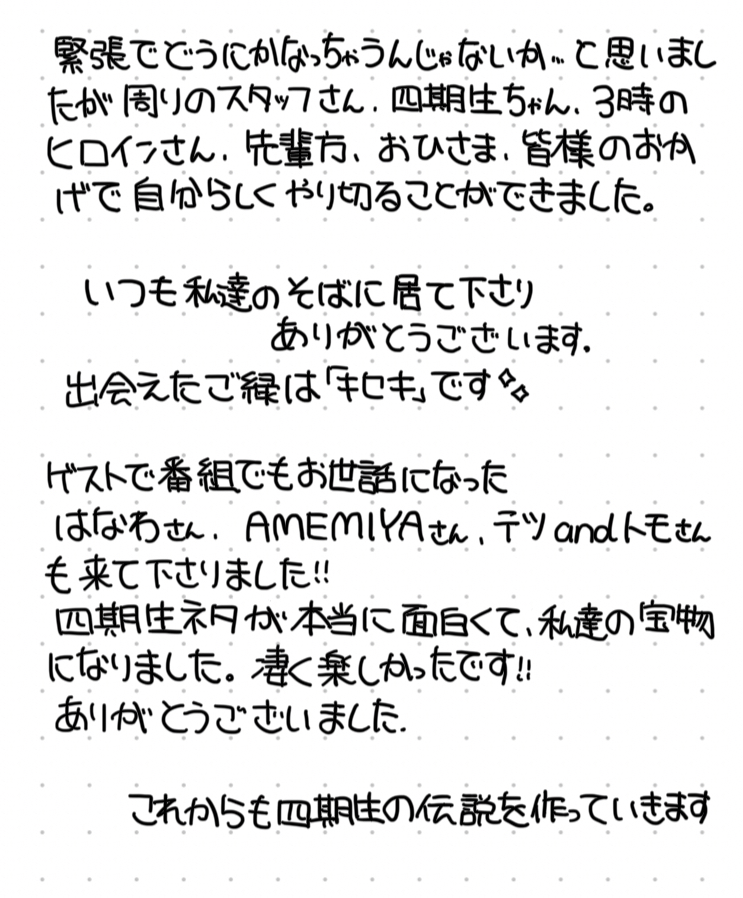 緊張でどうにかなっちゃうんじゃないか…と思いまし
たが周りのスタッフさん、四期生ちゃん、3時の
ヒロインさん、先輩方、おひさま、皆様のおか
げで自分らしくやり切ることができました。
いつも私達のそばに居て下さり
ありがとうございます.
出会えたご縁は「キセキ」です✨
ゲストで番組でもお世話になった
はなわさん、AMEMIYAさん、テツandトモさん
も来て下さりました!!
四期生ネタが本当に面白くて、私達の宝物
になりました。凄く楽しかったです!!
ありがとうございました.
これからも四期生の伝説を作っていきます